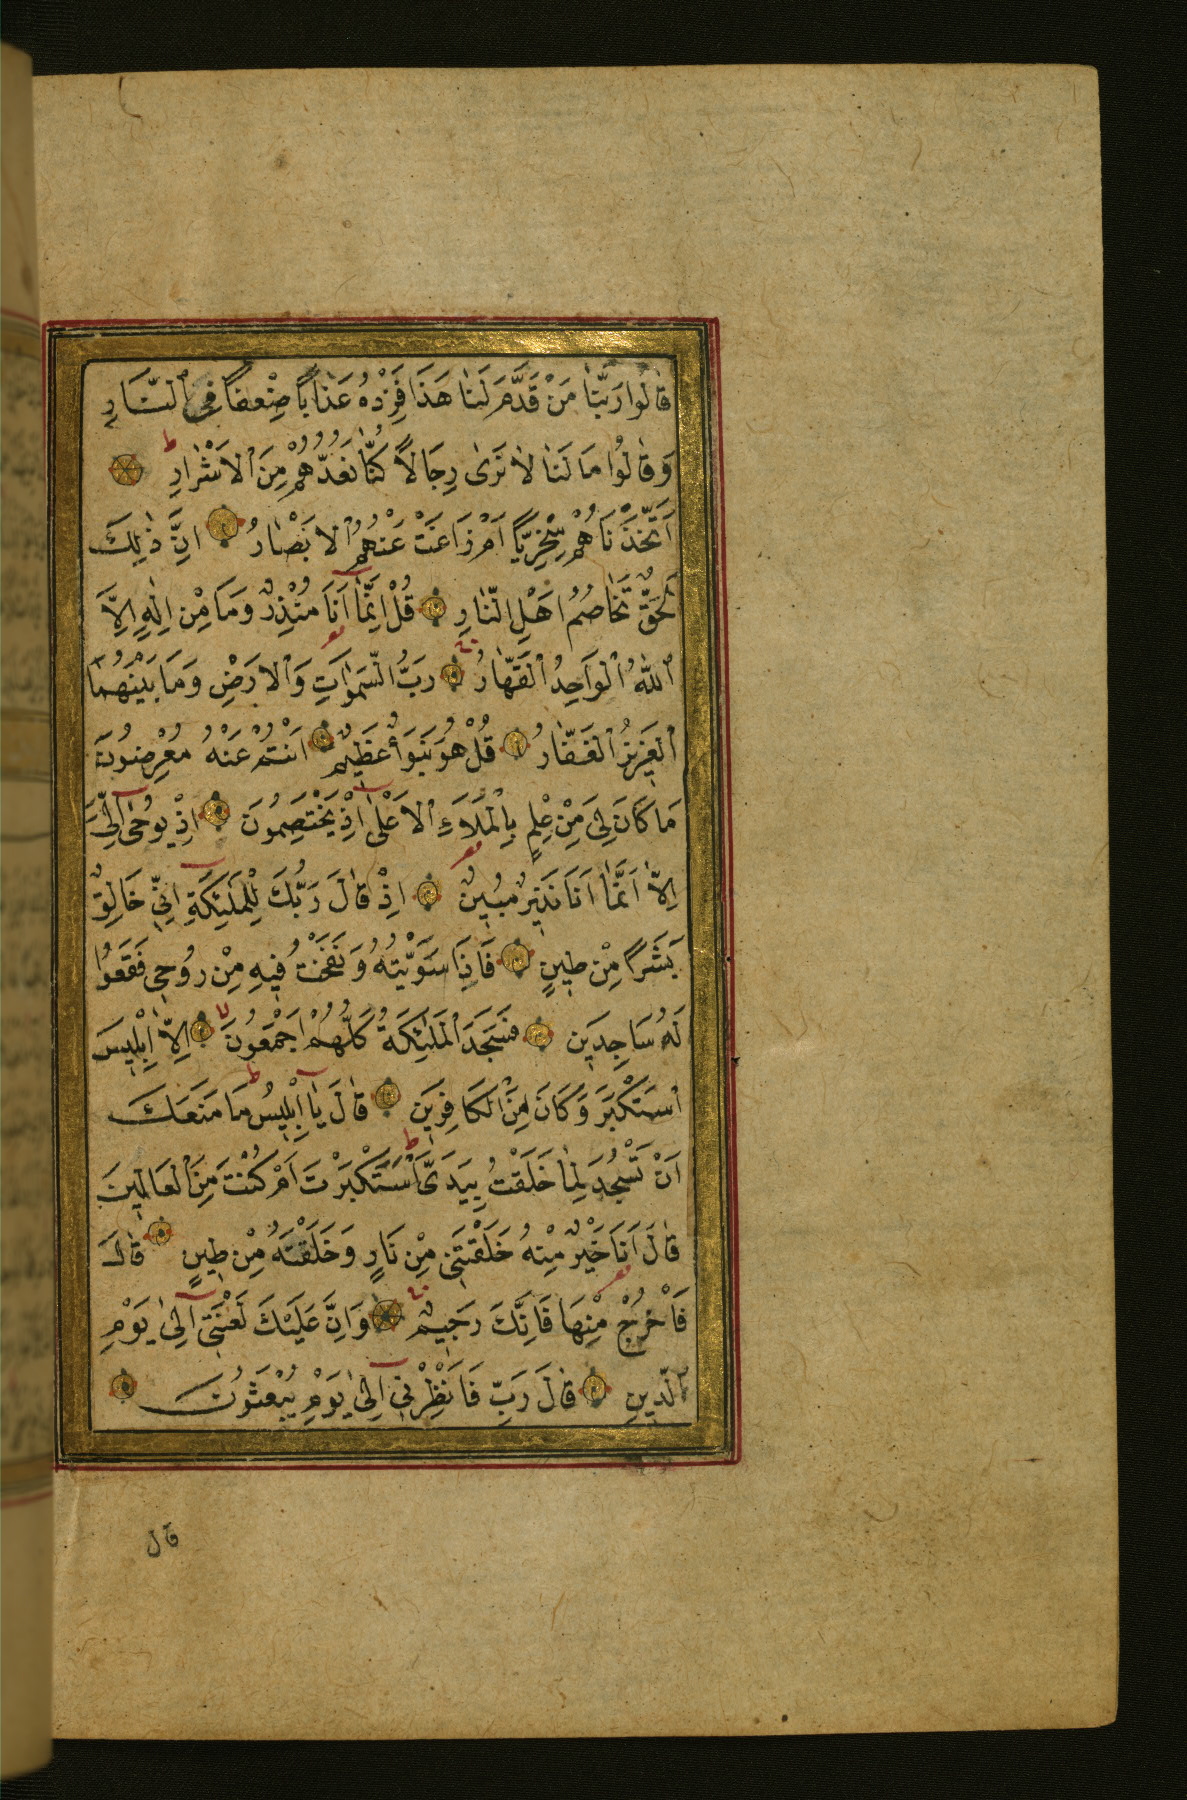 قَالُوا رَبَّنَا مَنْ قَدَّمَ لَنَا هَذَا فَزِدْهُ عَذَابًا ضِعْفًا فِي ٱلنَّارِ
وَقَالُوا مَا لَنَا لَا نَرَىٰ رِجَالًا كُنَّا نَعُدُّهُمْ مِنَ ٱلْأَشْرَارِ ط
اَتَّخَذْنَاهُمْ سِخْرِيًّا اَمْ زَاغَتْ عَنْهُمُ ٱلْاَبْصَارُ اِنَّ ذٰلِكَ
لَحَقٌّ تَخَاصُمُ اَهْلِ النَّارِ قُلْ اِنَّمَآ اَنَا مُنْذِرٌ وَمَا مِنْ اِلٰهٍ اِلَّا
ٱللّٰهُ ٱلْوَاحِدُ ٱلْقَهَّارُ رَبُّ السَّمٰوَاتِ وَٱلْاَرْضِ وَمَا بَيْنَهُمَا
ٱلْعَزِيزُ ٱلْغَفَّارُ قُلْ هُوَ نَبَؤٌا عَظِيمٌ اَنْتُمْ عَنْهُ مُعْرِضُونَ
مَا كَانَ لِيَ مِنْ عِلْمٍ بِالْمَلَاَءِ ٱلْاَعْلٰىٓ اِذْ يَخْتَصِمُونَ اِذْ يُوحٰىٓ اِلَيَّ
اِلَّآ اَنَّمَآ اَنَا نَذِيرٌ مُبِينٌ اِذْ قَالَ رَبُّكَ لِلْمَلٰئِكَةِ اِنِّي خَالِقٌ
بَشَرًا مِنْ طِينٍ فَاِذَا سَوَّيْتُهُ وَنَفَخْتُ فِيهِ مِنْ رُوحِي فَقَعُوا
لَهُ سَاجِدِينَ فَسَجَدَ ٱلْمَلٰئِكَةُ كُلُّهُمْ اَجْمَعُونَ لا اِلَّآ اِبْلِيسَ
اسْتَكْبَرَ وَكَانَ مِنَ ٱلْكَافِرِينَ ط قَالَ يَآ اِبْلِيسُ مَا مَنَعَكَ
اَنْ تَسْجُدَ لِمَا خَلَقْتُ بِيَدَيَّ ط اَسْتَكْبَرْتَ اَمْ كُنْتَ مِنَ ٱلْعَالِينَ
قَالَ اَنَا خَيْرٌ مِنْهُ خَلَقْتَنِي مِنْ نَارٍ وَخَلَقْتَهُ مِنْ طِينٍ قَالَ
فَاخْرُجْ مِنْهَا فَاِنَّكَ رَجِيمٌ وَاِنَّ عَلَيْكَ لَعْنَتِيٓ اِلٰى يَوْمِ
الدِّينِ قَالَ رَبِّ فَاَنْظِرْنِيٓ اِلٰى يَوْمِ يُبْعَثُونَ
قال